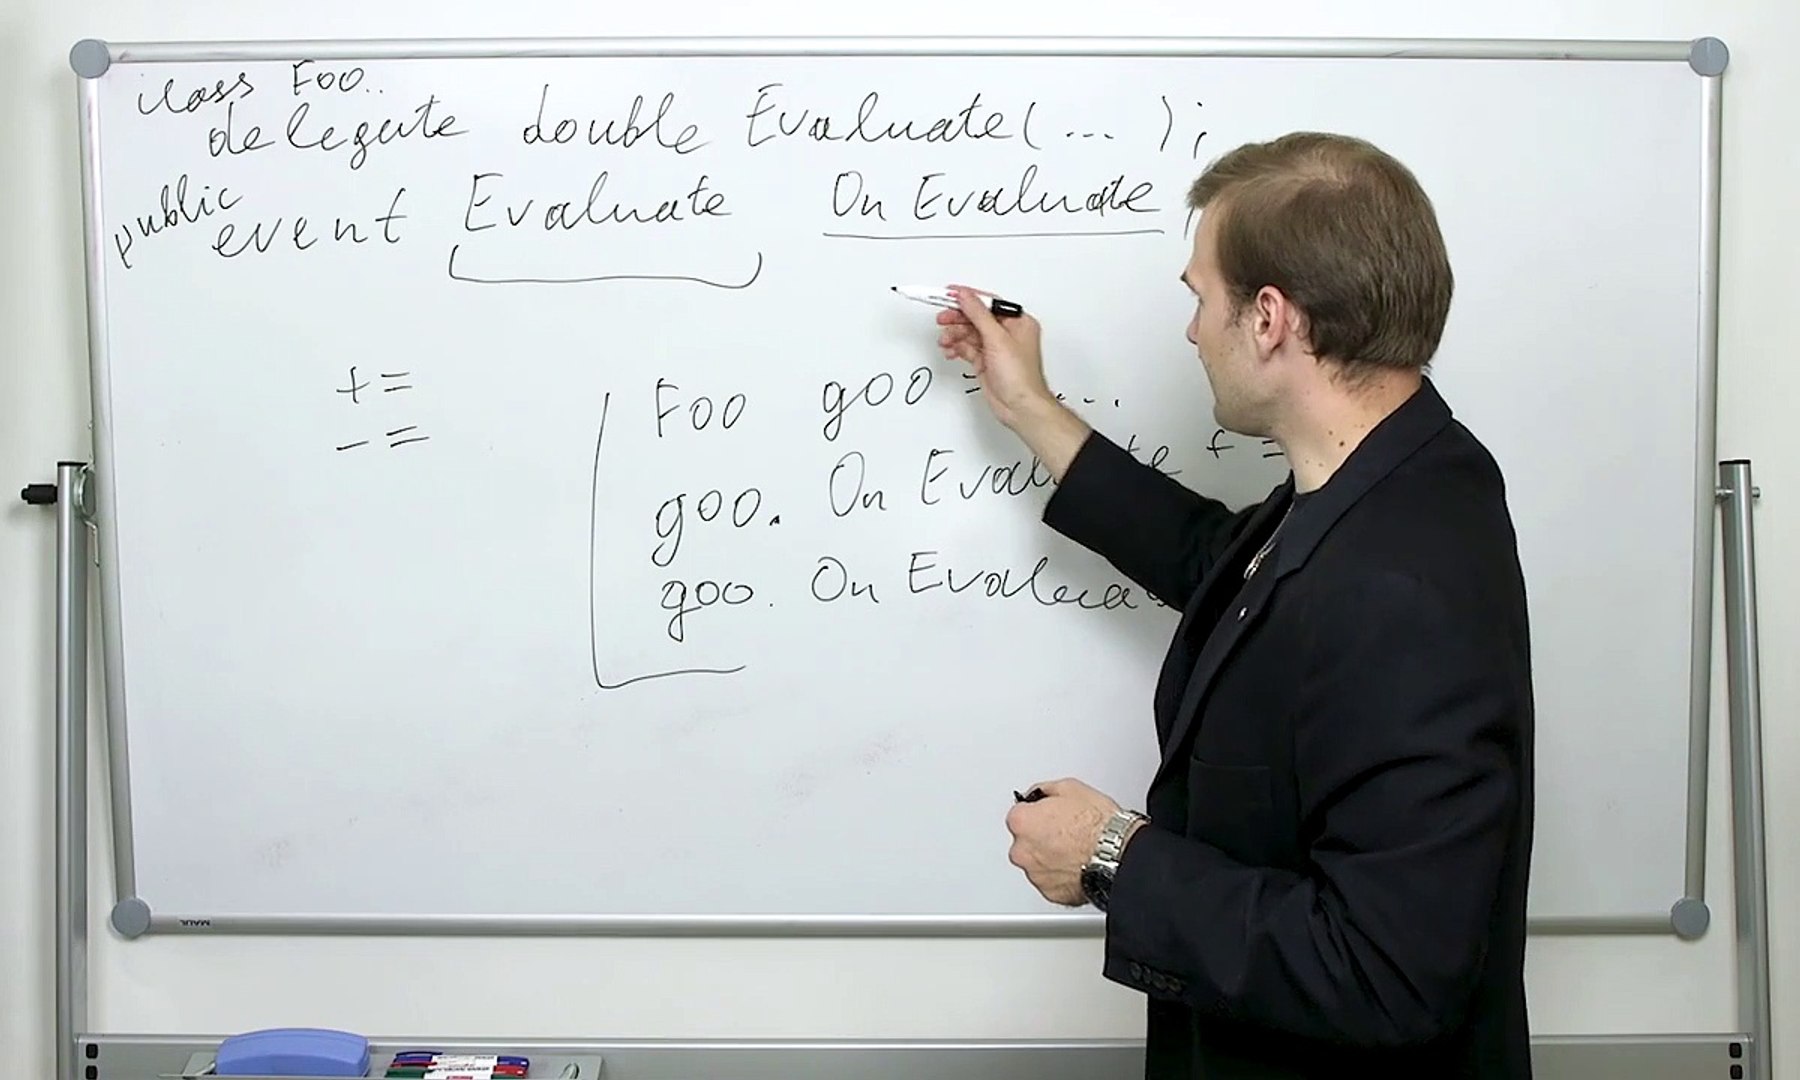 class Foo..
delegate double Evaluate(... );
public event Evaluate On Evaluate ;
+=
-=
Foo goo = ...
goo. On Evaluate + =
goo. On Evalua
MAUL